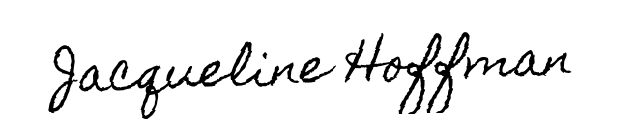 Jacqueline Hoffman